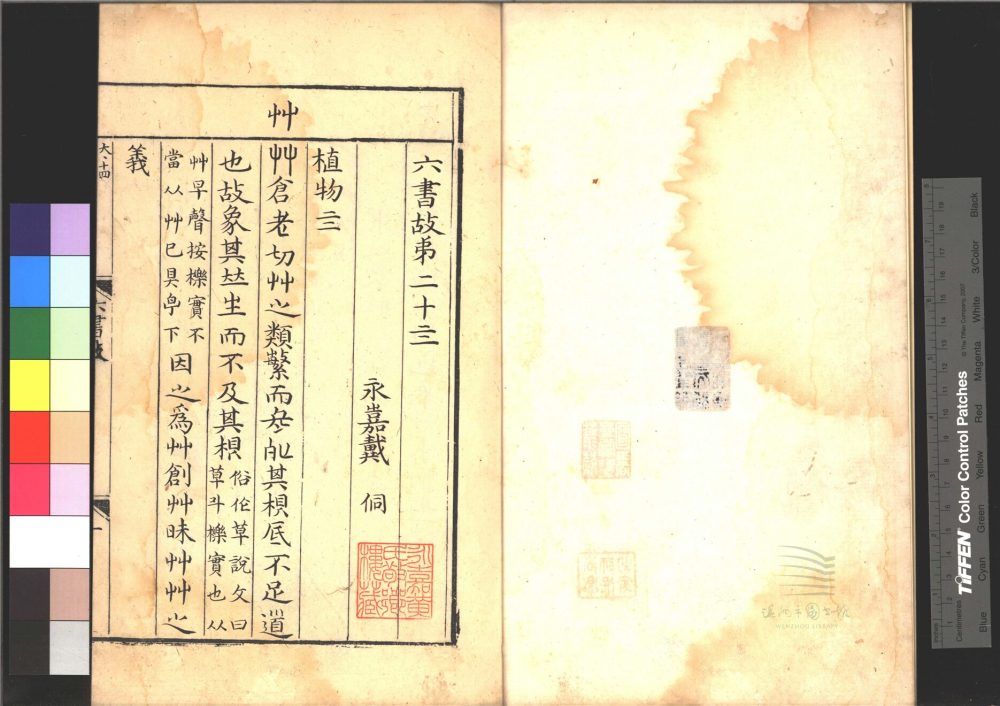 艸
六書故弟二十三
永嘉戴 侗
植物三
艸倉老切艸之類蘩而
其根氐不足
也故象其
生而不及其根俗
草說文曰
草斗櫟實也从
艸早聲按櫟實不
當从艸已具
下因之爲艸創艸昧艸艸之
義
大、十四
六書故
一
WENZHOU LIBRARY
TIFFEN Color Control Patches
© The Tiffen Company, 2007
Inches
Centimetres
Blue
Cyan
Green
Yellow
Red
Magenta
White
3/Color
Black